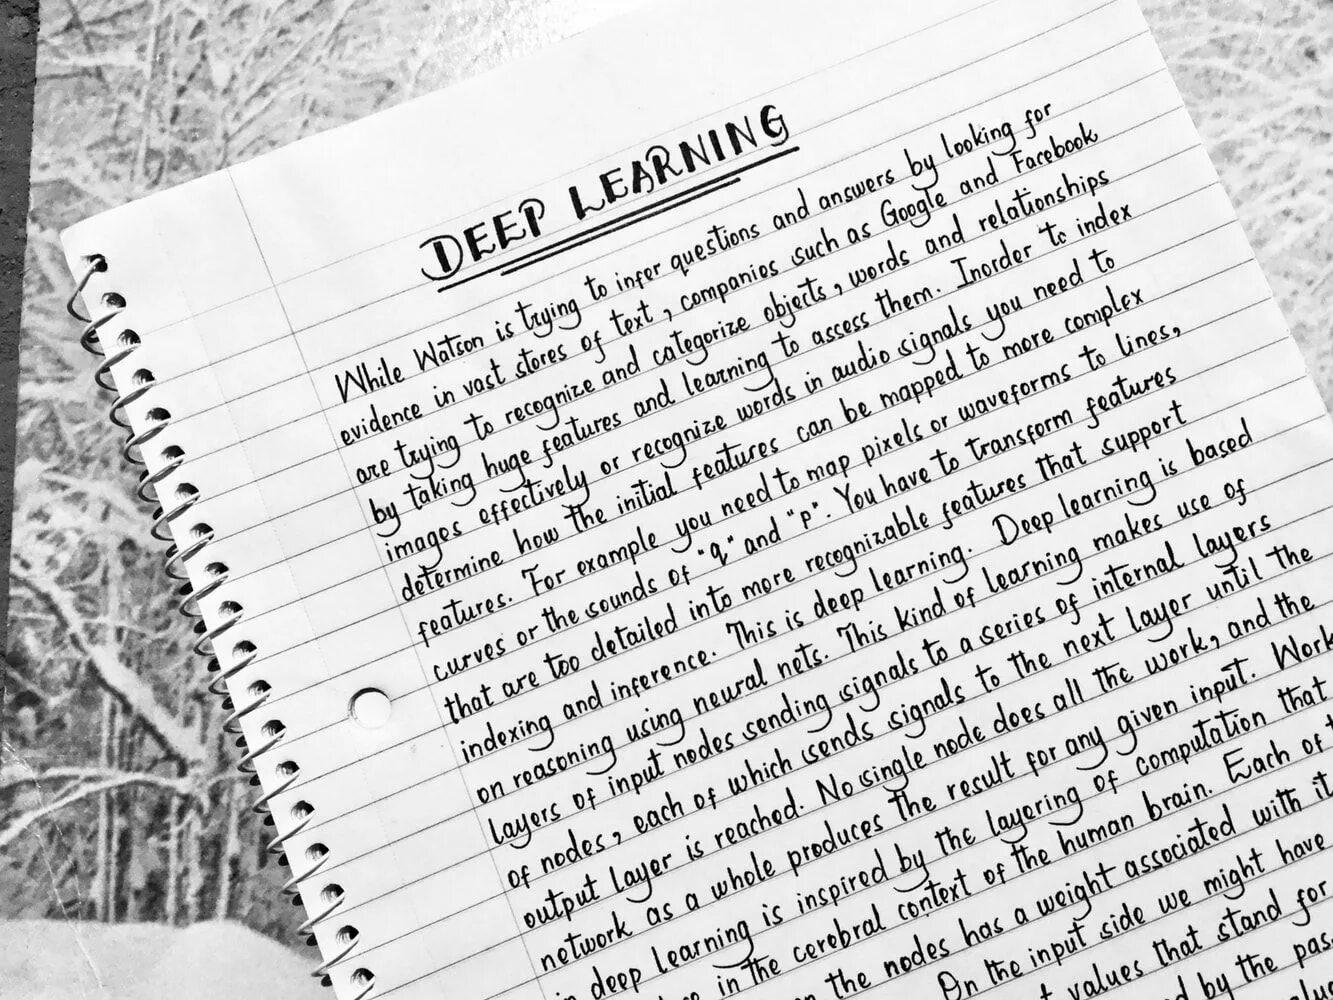 DEEP LEARNING
While Watson is trying to infer questions and answers by looking for
evidence in vast stores of text, companies such as Google and Facebook
are trying to recognize and categorize objects, words and relationships
by taking huge features and learning to assess them. Inorder to index
images effectively or recognize words in audio signals you need to
determine how the initial features can be mapped to more complex
features. For example you need to map pixels or waveforms to lines,
curves or the sounds of "q" and "p". You have to transform features
that are too detailed into more recognizable features that support
indexing and inference. This is deep learning. Deep learning is based
on reasoning using neural nets. This kind of learning makes use of
layers of input nodes sending signals to a series of internal layers
of nodes, each of which sends signals to the next layer until the
output layer is reached. No single node does all the work, and the
network as a whole produces the result for any given input. Work
in deep learning is inspired by the layering of computation that
in the cerebral context of the human brain. Each of
the nodes has a weight associated with it
On the input side we might have
values that stand for
by the